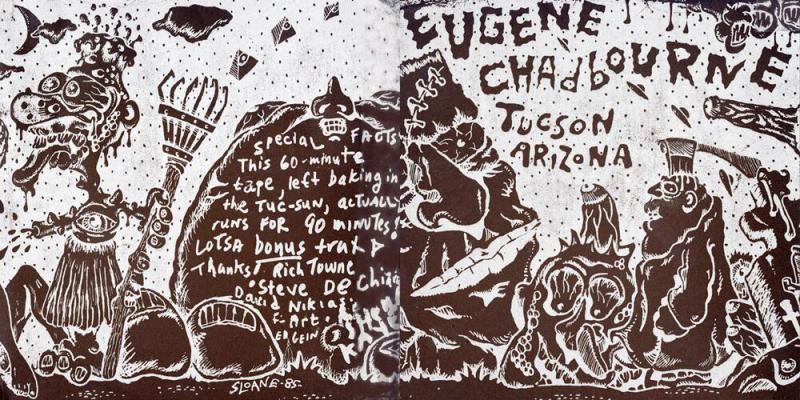 Special FACTS
This 60-minute
tape left baking in
the TUC-SUN, ACTUALL
runs FOR 90 minutes!
LOTSA bonus trax
Thanks! Rich Towne
Steve De
David
F-Art
SLOANE-85-
EUGENE
CHAdbOURNE
TUCSON
ARIZONA